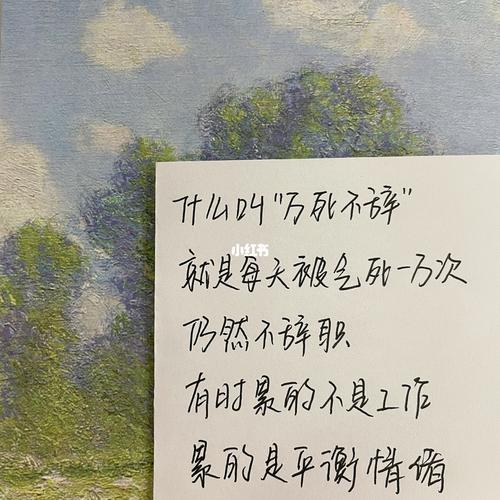 什么叫“万死不辞”
小红书
就是每天被气死一万次
仍然不辞职
有时累的不是工作
累的是平衡情绪